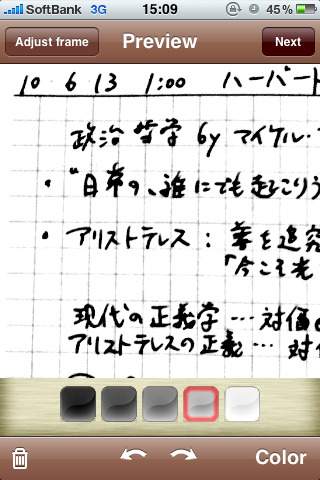 SoftBank 3G 15:09 45%
Adjust frame Preview Next
10 6 13 1:00 ハーバート
政治哲学 by マイケル・
・"日常の、誰にでも起こりう
・アリストテレス : 善を追究
「今こそ光
現代の正義学 … 対価
アリストテレスの正義 … 対
Color